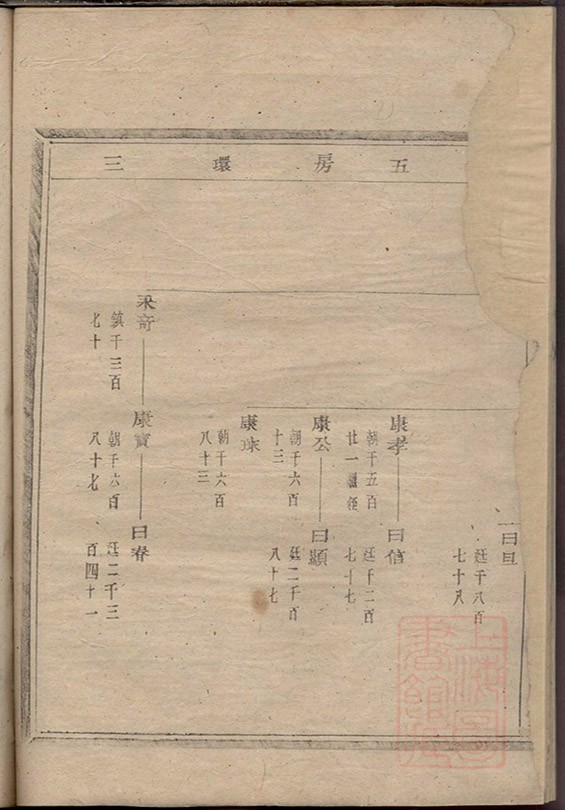 五房環三
曰旦
廷千八百
七十八
康孝
曰信
朝千五百
廿一
廷千二百
七十七
康公
曰顯
朝千六百
十三
廷二千百
八十七
康球
朝千六百
八十三
采奇
康寶
曰春
鎮千三百
七十
朝千六百
八十七
廷二千三
百四十一
上海圖
書館藏